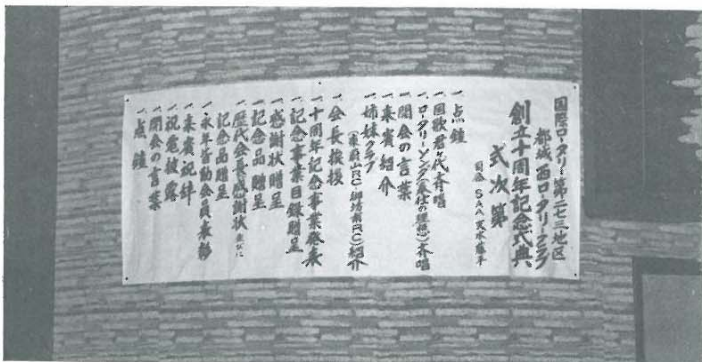 国際ロータリー第二七三地区
都城西ロータリークラブ
創立十周年記念式典
式次第
司会 SAA
一、点鐘
一、国歌君ケ代斉唱
一、ロータリーソング(奉仕の理想)斉唱
一、開会の言葉
一、来賓紹介
一、姉妹クラブ
(東釜山RC)(御坊南RC)紹介
一、会長挨拶
一、十周年記念事業発表
一、記念事業目録贈呈
一、感謝状贈呈
一、記念品贈呈
一、歴代会長感謝状並びに
記念品贈呈
一、永年皆勤会員表彰
一、来賓祝辞
一、祝電披露
一、閉会の言葉
一、点鐘